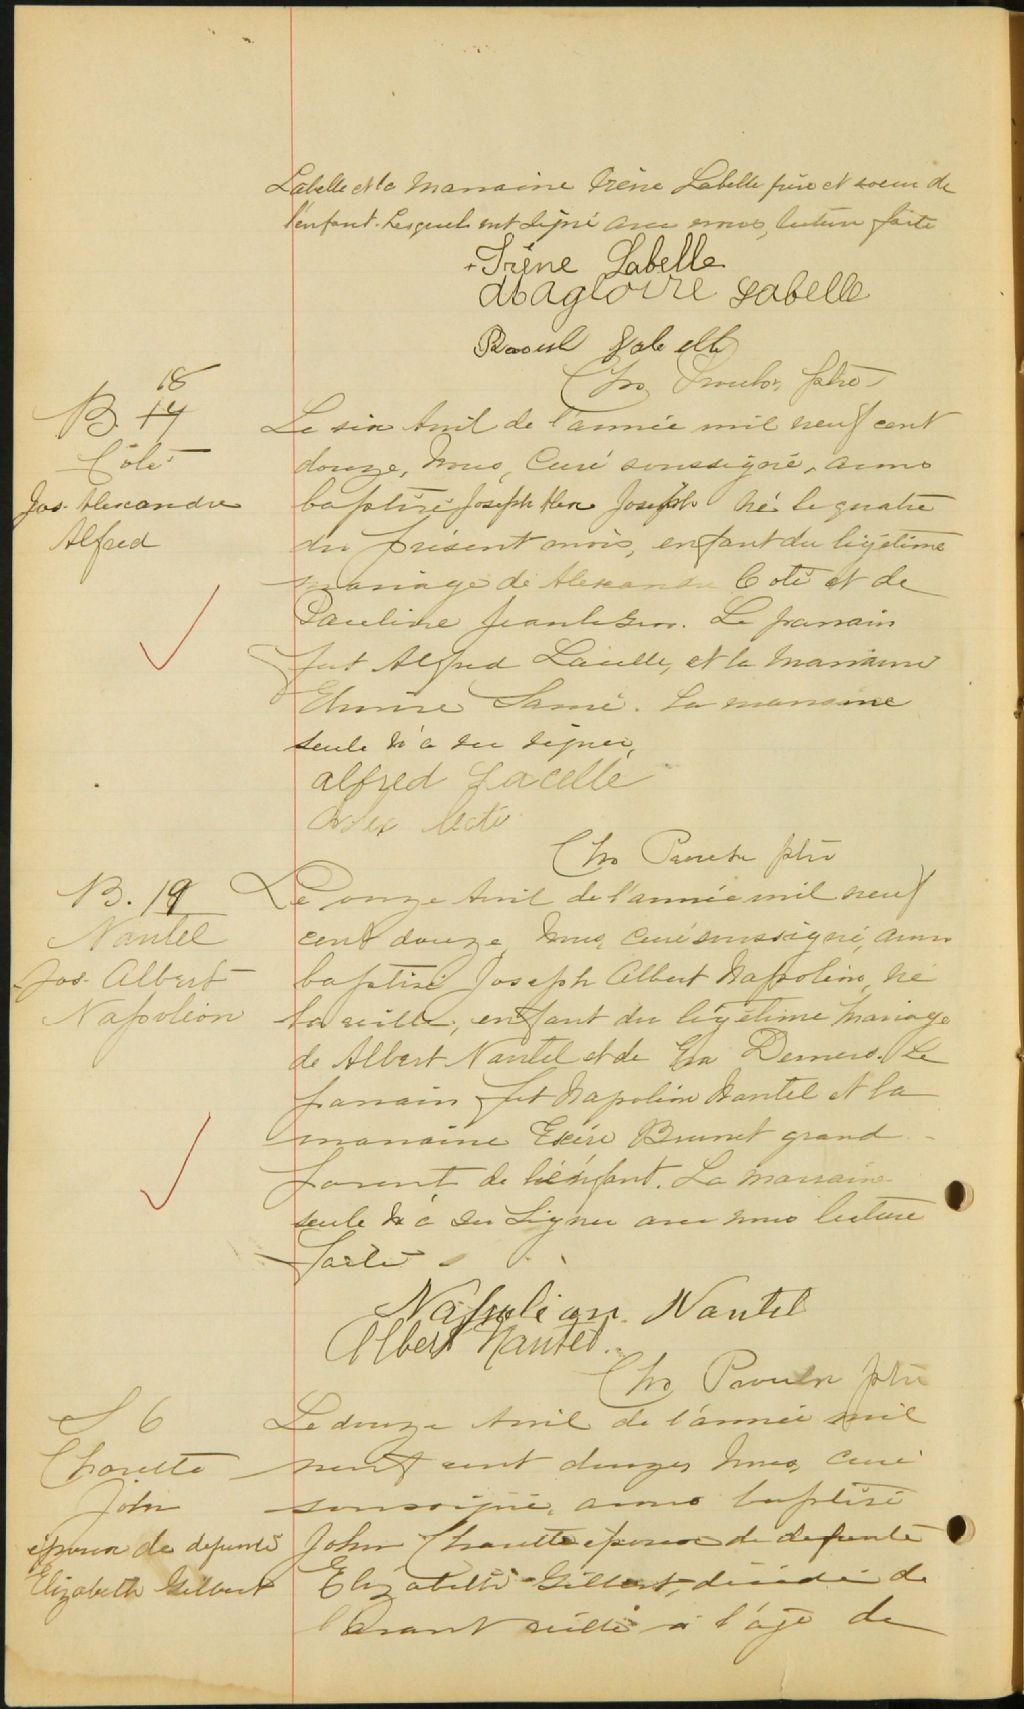 Labelle et la Marraine Irène Labelle frère et soeur de
l'enfant. Lesquels ont signé avec nous, lecture faite
+ Irène Labelle
Magloire Labelle
Raoul Labelle
Chs ptre
18
B. 17
Côté
Jos. Alexandre
Alfred
Le six Avril de l'année mil neuf cent
douze, Nous, Curé soussigné, avons
baptisé Joseph Alex Joseph né le quatre
du présent mois, enfant du légitime
mariage de Alexandre Coté et de
Pauline. Le parrain
fut Alfred Lacelle, et la Marraine
Elmire. La marraine
seule n'a su signer,
alfred Lacelle
Chs ptre
B. 19
Nantel
Jos. Albert
Napoléon
Le onze Avril de l'année mil neuf
cent douze, Nous, curé soussigné, avons
baptisé Joseph Albert Napoléon, né
la veille, enfant du légitime Mariage
de Albert Nantel et de Eva Demers. Le
parrain fut Napoléon Nantel et la
marraine Exére Brunet grand
parent de l'enfant. La Marraine
seule n'a su signer avec nous lecture
faite
Napoléon Nantel
Albert Nantel
Chs ptre
S 6
Charette
John
époux de défunte
Elizabeth Gilbert
Le douze Avril de l'année mil
neuf cent douze, Nous, curé
soussigné, avons baptisé
John Charette époux de défunte
Elizabeth Gilbert, décédé de
l'avant veille à l'âge de